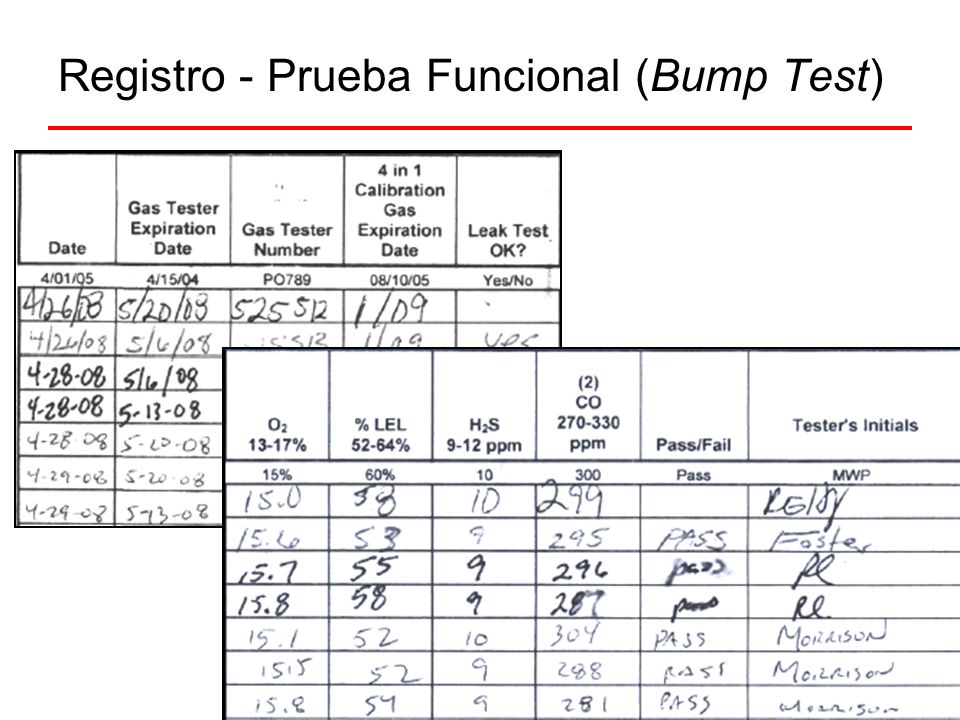 Registro - Prueba Funcional (Bump Test)
Date | Gas Tester Expiration Date | Gas Tester Number | 4 in 1 Calibration Gas Expiration Date | Leak Test OK?
4/01/05 | 4/15/04 | PO789 | 08/10/05 | Yes/No
4/26/08 | 5/20/08 | 525 512 | 1/09
4/26/08 | 5/6/08 | 1/09 | yes
4-28-08 | 5/6/08
4-28-08 | 5-13-08
4-28-08 | 5-20-08
4-29-08 | 5-20-08
4-29-08 | 5-13-08
O₂ 13-17% | % LEL 52-64% | H₂S 9-12 ppm | (2) CO 270-330 ppm | Pass/Fail | Tester's Initials
15% | 60% | 10 | 300 | Pass | MWP
15.0 | 58 | 10 | 299
15.6 | 53 | 9 | 295 | PASS | Foster
15.7 | 55 | 9 | 296 | pass | RL
15.8 | 58 | 9 | 287 | RL
15.1 | 52 | 10 | 304 | PASS | MORRISON
15.5 | 52 | 9 | 288 | PASS | MORRISON
15.8 | 54 | 9 | 281 | PASS | MORRISON